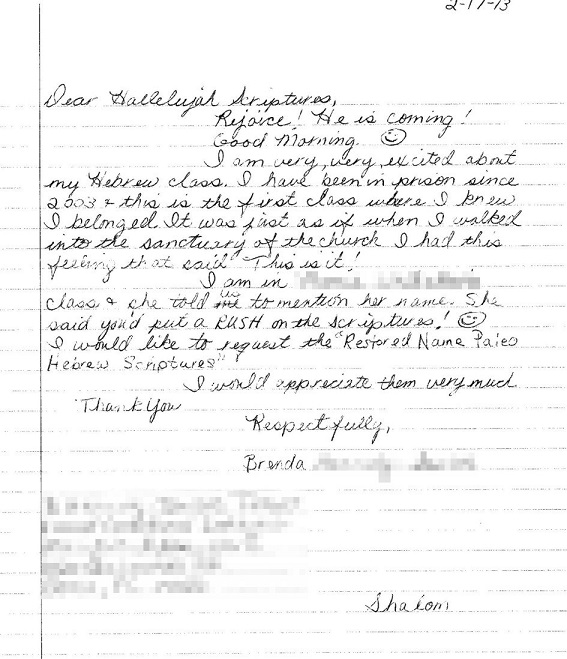 2-17-13
Dear Hallelujah Scriptures,
Rejoice! He is coming!
Good Morning. ☺
I am very, very excited about
my Hebrew class. I have been in prison since
2003 & this is the first class where I knew
I belonged. It was just as if when I walked
into the sanctuary of the church I had this
feeling that said "This is it!
I am in
class & she told us to mention her name. She
said you'd put a RUSH on the scriptures! ☺
I would like to request the "Restored Name Paleo
Hebrew Scriptures"
I would appreciate them very much
Thank You
Respectfully,
Brenda
Shalom